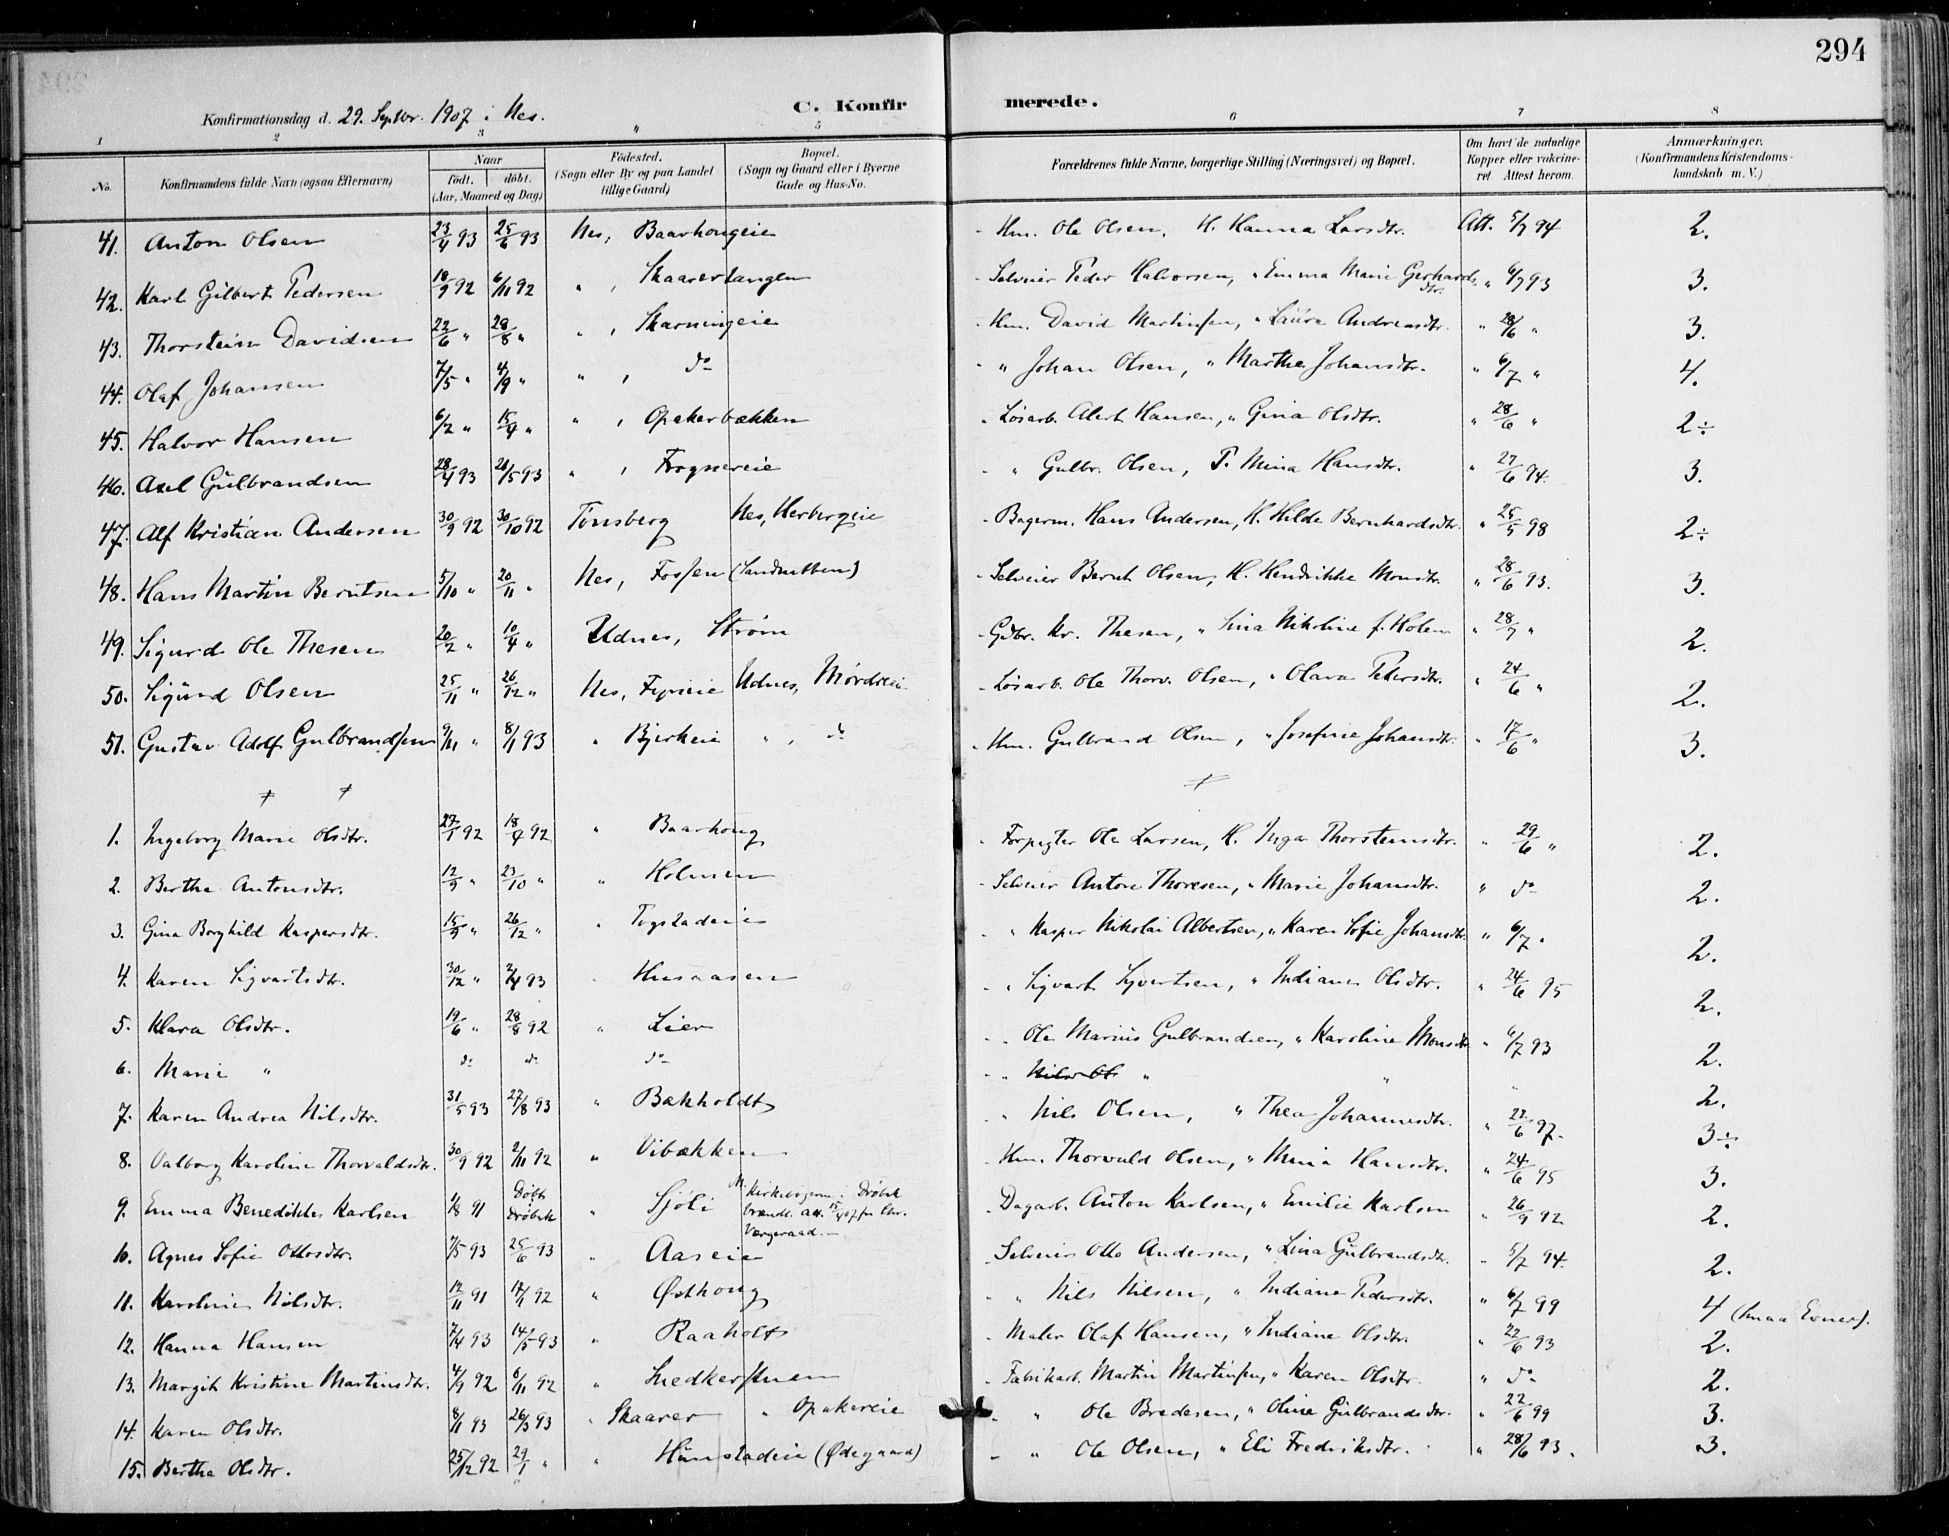 294
Konfirmationsdag d. 29. Septbr. 1907 i Nes.
C. Konfirmerede.
1 2 3 " 5 6 7 8
No. Konfirmandens fulde Navn (ogsaa Efternavn) Naar født. døbt. (Aar, Maaned og Dag) Fødested. (Sogn eller By og paa Landet tillige Gaard) Bopæl. (Sogn og Gaard eller i Byerne Gade og Hus-No. Forældrenes fulde Navne, borgerlige Stilling (Næringsvei) og Bopæl. Om havt de naturlige Kopper eller vakcineret. Attest herom. Anmærkninger. (Konfirmandens Kristendomskundskab m. V.)
41. Anton Olsen 23/4 93 25/6 93 Nes, Baarhougeie Hm. Ole Olsen, H. Hanna Larsdtr. Att. 5/7 94 2.
42. Karl Gilbert Pedersen 18/9 92 6/11 92 " , Skaarertangen Selveier Peder Halvorsen, " Emma Marie Gerhardsdtr. " 6/7 93 3.
43. Thorstein Davidsen 22/6 " 28/8 " " , Skarningeie Hm. David Martinsen, " Laura Andreasdtr. " 28/6 " 3.
44. Olaf Johansen 7/5 " 4/9 " " , do " Johan Olsen, " Marthe Johansdtr. " 6/7 " 4.
45. Halvor Hansen 6/2 " 15/4 " " , Opakerbækken Løsarb. Alert Hansen, " Gina Olsdtr. " 28/6 " 2÷
46. Axel Gulbrandsen 28/4 93 21/5 93 " , Frognereie " Gulbr. Olsen, P. Mina Hansdtr. " 27/6 94. 3.
47. Alf Kristian Andersen 30/9 92 30/10 92 Tønsberg Nes, Herbergeie Bagerm. Hans Andersen, H. Hilda Bernhardsdtr. " 25/5 98 2÷
48. Hans Martin Berntsen 5/10 " 20/11 " Nes, Fossen (Sandnebben) Selveier Bernt Olsen, H. Hendrikke Monsdtr. " 28/6 93. 3.
49. Sigurd Ole Thesen 20/2 " 10/4 " Udnes, Strøm Gdbr. Kr. Thesen, " Lina Nikoline f. Holem " 28/7 " 2.
50. Sigurd Olsen 25/11 " 26/12 " Nes, Fyrieie Udnes, Nordreie Løsarb. Ole Thorv. Olsen, " Olava Pedersdtr. " 24/6 " 2.
51. Gustav Adolf Gulbrandsen 9/11 " 8/1 93 " Bjerkeie " , do Hm. Gulbrand Olsen, " Josefine Johansdtr. " 17/6 " 3.
1. Ingeborg Marie Olsdtr. 27/1 92 18/4 92 " Baarhoug Forpagter Ole Larsen, H. Inga Thorsteinsdtr. " 29/6 " 2.
2. Berthe Antonsdtr. 12/9 " 23/10 " " Holmen Selveier Anton Thoresen, " Marie Johansdtr. " do 2.
3. Gina Borghild Kaspersdtr. 15/9 " 26/12 " " Togstadeie " Kasper Nikolai Albertsen, " Karen Sofie Johansdtr. " 6/7 " 2.
4. Karen Sigvartsdtr. 30/12 " 2/4 93 " Husaasen " Sigvart Syvertsen, " Indiane Olsdtr. " 24/6 95 2.
5. Klara Olsdtr. 19/6 " 28/8 92 " Lier " Ole Marius Gulbrandsen, " Karoline Monsdtr " 6/7 93 2.
6. Marie " do do do " " " 2.
7. Karen Andrea Nilsdtr. 31/5 93 27/8 93 " Bækholdt " Nils Olsen, " Thea Johannesdtr. " 22/6 97. 3÷
8. Valborg Karoline Thorvaldsdtr. 30/9 92 2/11 92 " Vibækken Hm. Thorvald Olsen, " Mina Hansdtr. " 24/6 95 3.
9. Emma Benedikte Karlsen 1/8 91 Døbt Drøbak " Sjøli Kirkebøgerne i Drøbak brændt. Att. 15/4 07 fra Chr. Vergeraad. Dagarb. Anton Karlsen, " Emilie Karlsen " 26/9 92 2.
10. Agnes Sofie Ottosdtr. 7/5 93 25/6 93 " Aaseie Selveier Otto Andersen, " Lina Gulbrandsdtr. " 5/7 94. 2.
11. Karoline Nilsdtr. 12/11 91 17/1 92 " Østhoug " Nils Nilsen, " Indiana Pedersdtr. " 6/7 99 4 (smaa Evner).
12. Hanna Hansen 7/4 93 14/5 93 " Raaholt Maler Olaf Hansen, " Indiane Olsdtr. " 22/6 93 2.
13. Margit Kristine Martinsdtr. 4/9 92 6/11 92 " Snedkerstuen Fabrikarb. Martin Martinsen, " Karen Olsdtr. " do 2.
14. Karen Olsdtr. 8/11 93 26/3 93 " Skaarer " Opakereie " Ole Bredesen, " Oline Gulbrandsdtr. " 22/6 99 3.
15. Berthe Olsdtr. 25/12 92 29/1 " " Hunstadeie (Ødegaard) " Ole Olsen, " Eli Fredriksdtr. " 28/6 93. 3.